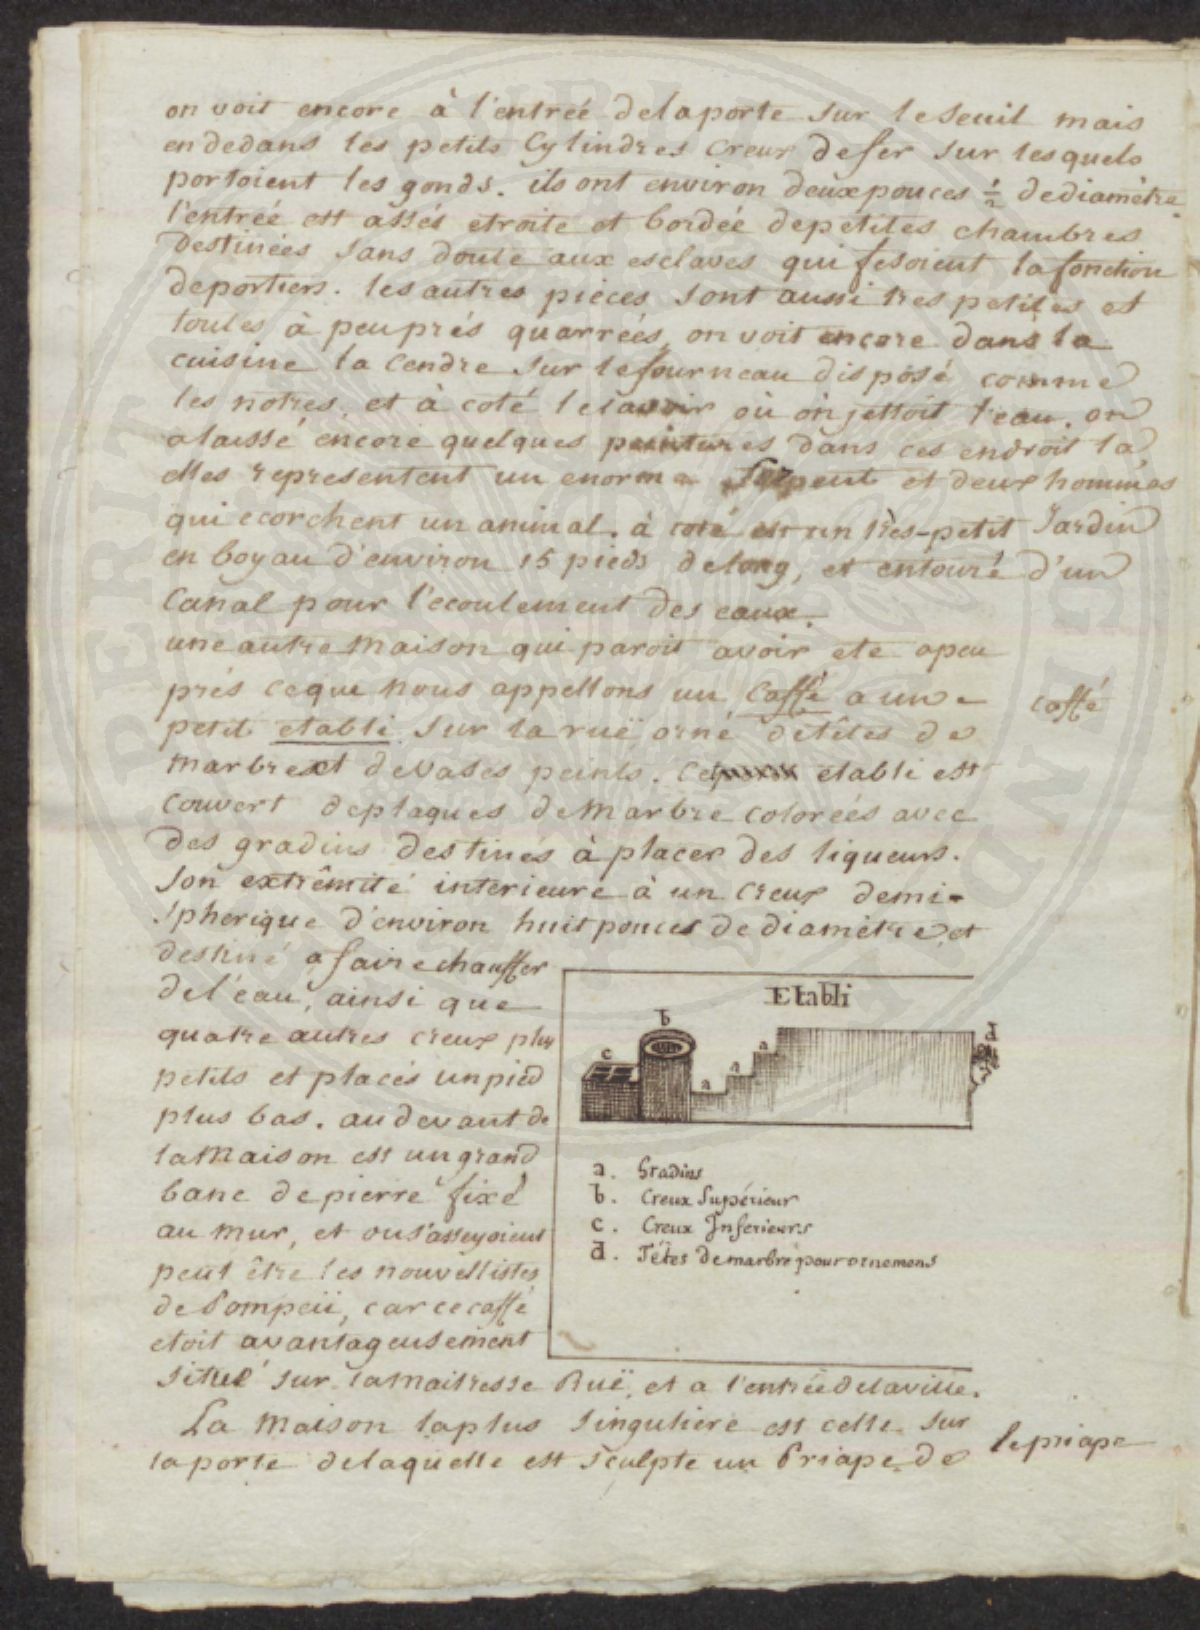 on voit encore à l'entreé delaporte sur leseuil mais
en dedans les petits Cylindres creux defer sur lesquels
portoient les gonds. ils ont environ deux pouces ½ dediamêtre.
l'entrée est assés etroite et bordée depetites chambres
destinées sans doute aux esclaves qui fesoient lafonction
deportiers. les autres pièces sont aussi tres petites et
toutes à peuprés quarreés, on voit encore dans la
cuisine la cendre sur lefourneau disposé comme
les notres, et à coté lelavoir où on jettoit l'eau. on
a laissé encore quelques peintures dans ces endroit là
elles representent un enorme serpent et deux hommes
qui ecorchent un animal. à coté est un très-petit Jardin
en boyau d'environ 15 pieds delong, et entouré d'un
Canal pour l'ecoulement des eaux.
une autre maison qui paroit avoir eté apeu
prés ceque nous appellons un Caffé a une
caffé
petit etabli sur la ruë orné detêtes de
marbre et devases peints. ce etabli est
couvert deplaques demarbre coloreés avec
des gradins destinés à placer des liqueurs.
son extrêmité interieure à un creux demi-
spherique d'environ huit pouces dediamétre, et
destiné afaire chauffer
del'eau, ainsi que
quatre autres creux plus
petits et placés unpied
plus bas. au devant de
lamaison est un grand
banc depierre fixé
au mur, et ou s'asseyoient
peut être les nouvellistes
dePompeii, car ce caffé
etoit avantageusement
situé sur lamaitresse Ruë, et a l'entréedelaville.
Etabli
b
d
c
a
a
a
a. Gradins
b. Creux Supérieur
c. Creux Inferieurs
d. Têtes demarbre pour ornemens
La maison laplus singuliere est celle sur
laporte delaquelle est sculpté un Priape de
lepriape